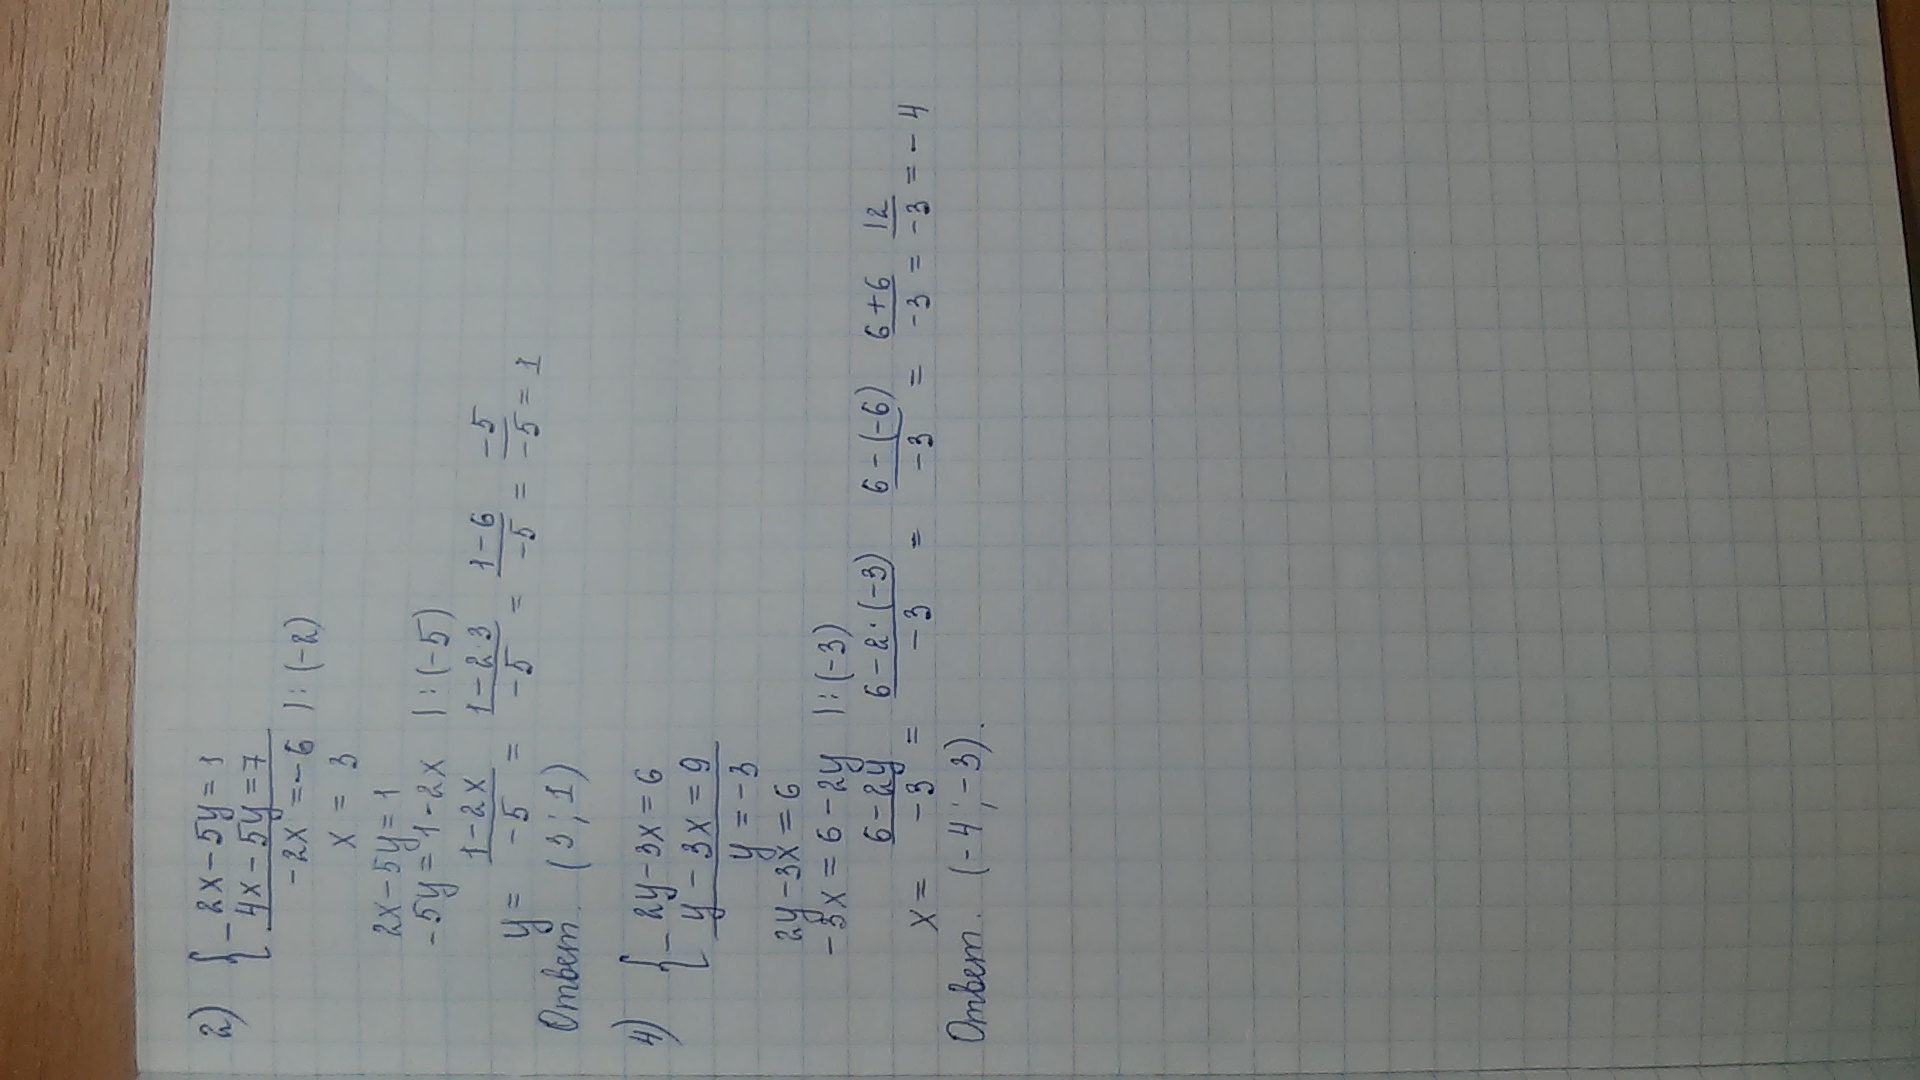 2) { - 2x - 5y = 1
4x - 5y = 7
-2x = -6 | : (-2)
x = 3
2x - 5y = 1
-5y = 1 - 2x | : (-5)
y = \frac{1-2x}{-5} = \frac{1-2·3}{-5} = \frac{1-6}{-5} = \frac{-5}{-5} = 1
Ответ. (3; 1)
4) { - 2y - 3x = 6
y - 3x = 9
y = -3
2y - 3x = 6
-3x = 6 - 2y | : (-3)
x = \frac{6-2y}{-3} = \frac{6-2·(-3)}{-3} = \frac{6-(-6)}{-3} = \frac{6+6}{-3} = \frac{12}{-3} = -4
Ответ. (-4; -3).